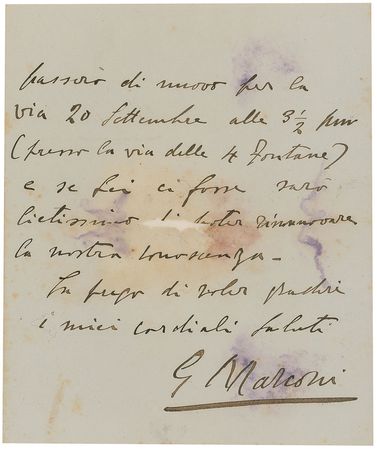 passerò di nuovo per la
via 20 Settembre alle 3½ pm
(presso la via delle 4 Fontane)
e se Lei ci fosse sarò
lietissimo di poter rinnovare
la nostra conoscenza -
La prego di voler gradire
i miei cordiali saluti
G Marconi